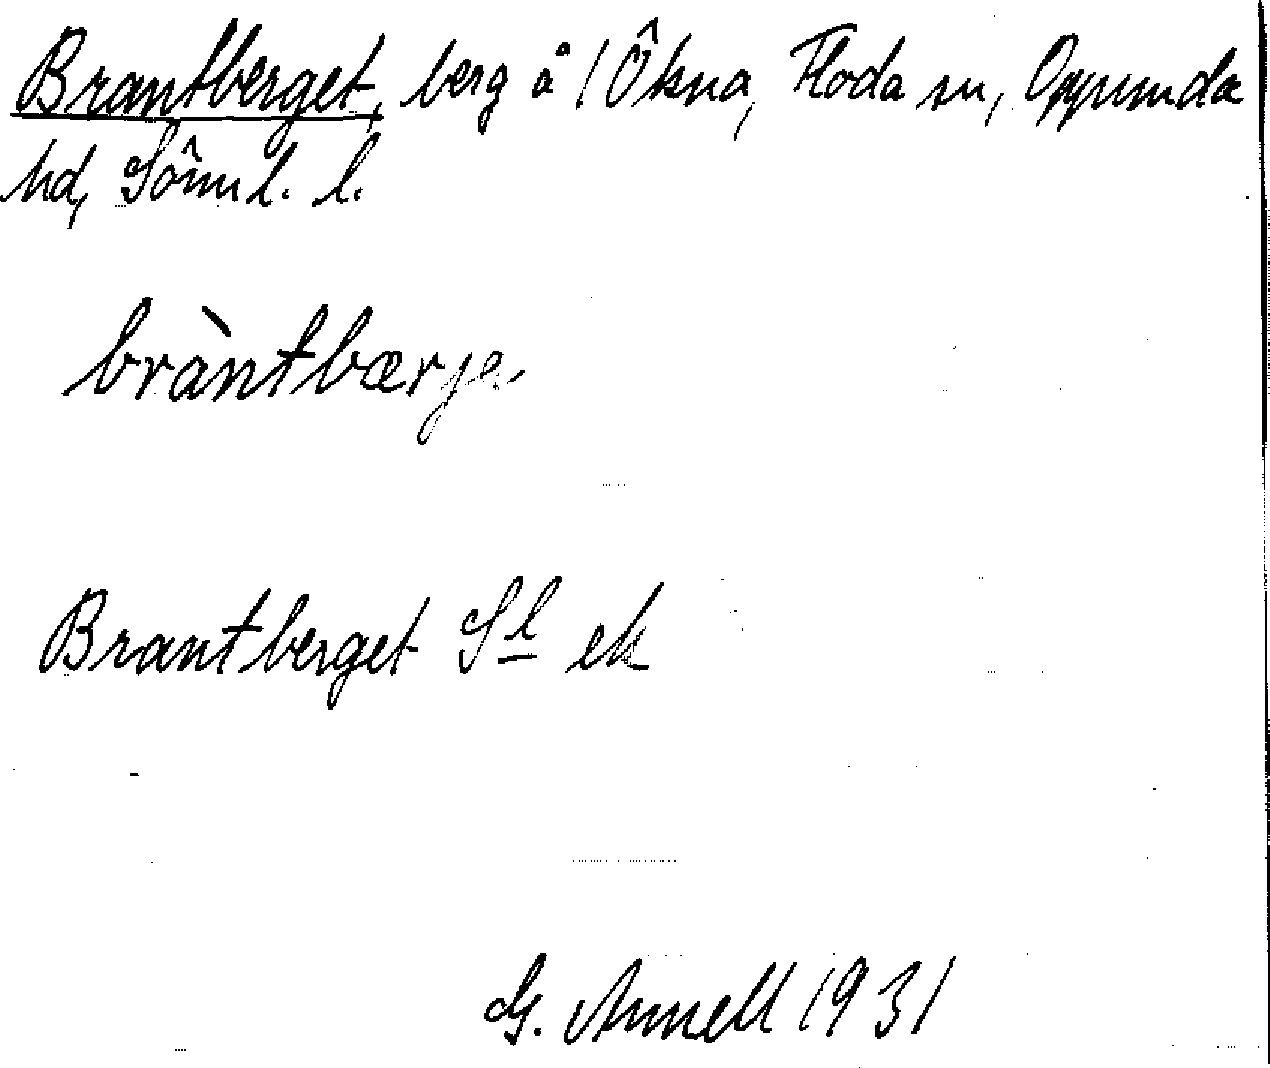 Brantberget, berg å 1 Ökna, Floda sn, Oppunda
hd, Söml. l.
bràntbærje
Brantberget Sl ek
G. Annell 1931